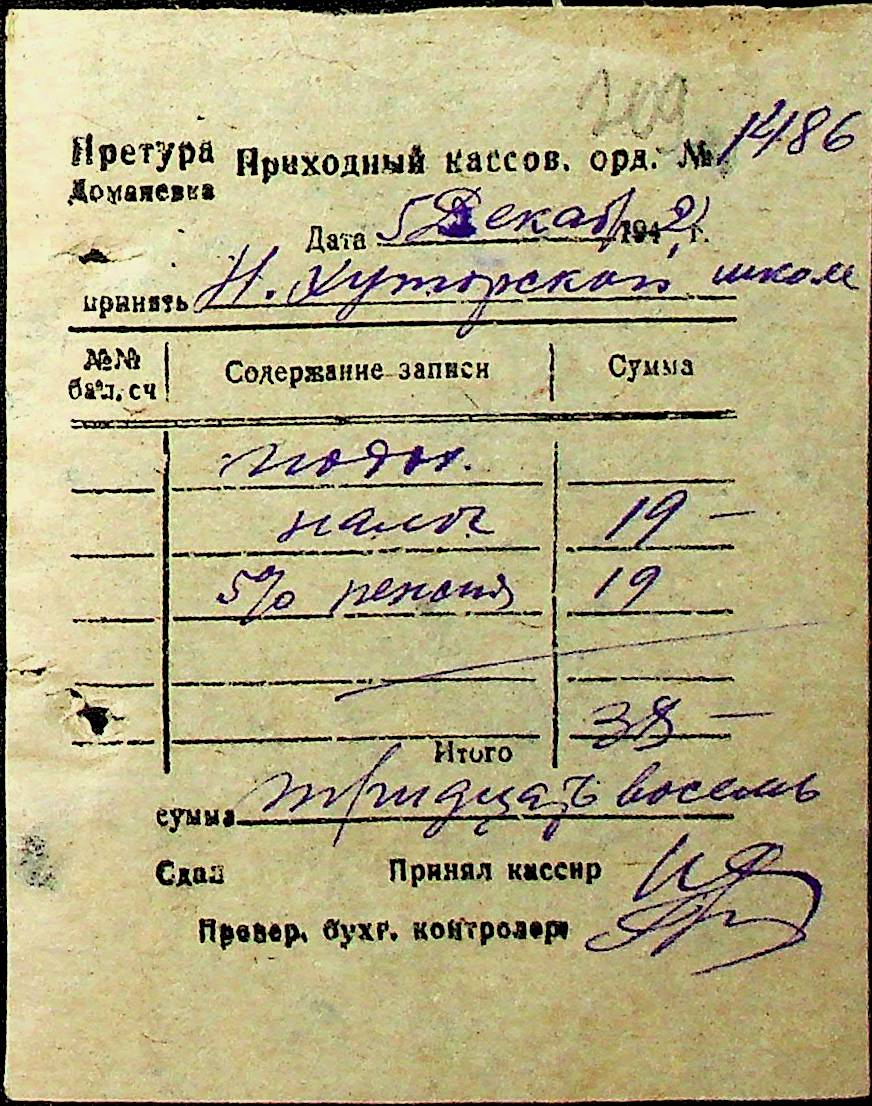 209
Претура Приходный кассов. орд. № 1486
Доманевка
Дата 5 Декаб 1942 г.
принять Н. Хуторской школе
№№ бал. сч Содержание записи Сумма
подох.
налог 19 —
5% пенсия 19
Итого 38 —
сумма тридцать восемь
Сдал Принял кассир
Провер. бухг. контролер